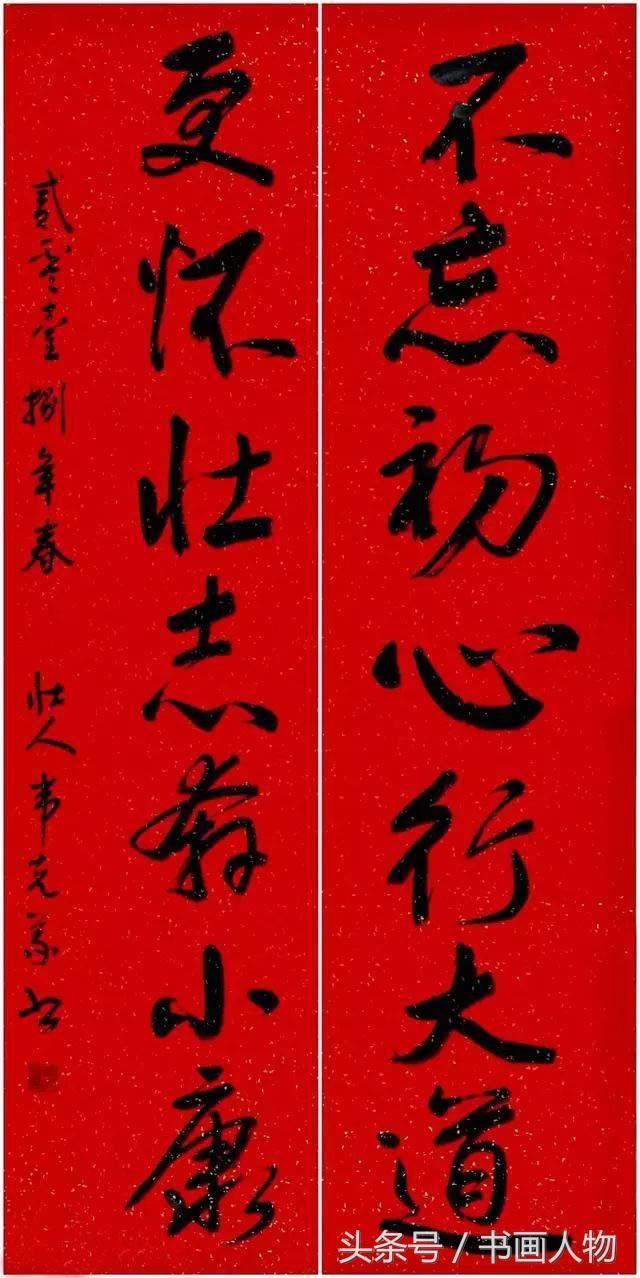 不忘初心行大道
更怀壮志奔小康
贰零壹捌年春 壮人韦克义书
头条号 / 书画人物